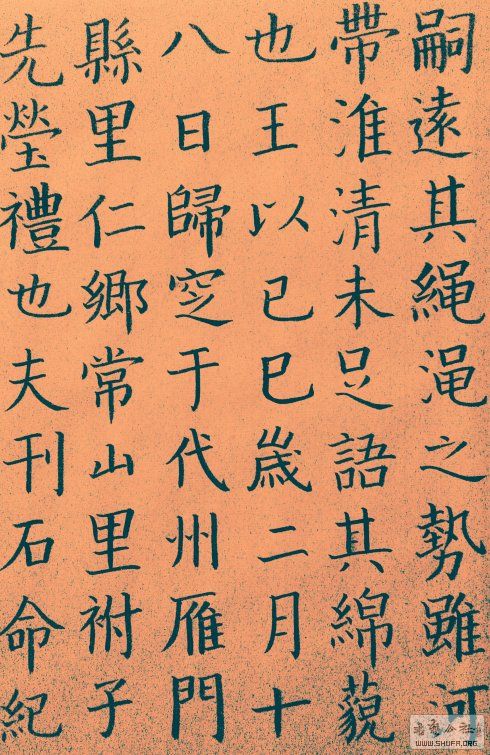 嗣遠其繩澠之勢雖河
帶淮清未足語其綿藐
也王以己巳歲二月十
八日歸窆于代州雁門
縣里仁鄉常山里祔子
先塋禮也夫刊石命紀
WWW.SHUFA.ORG